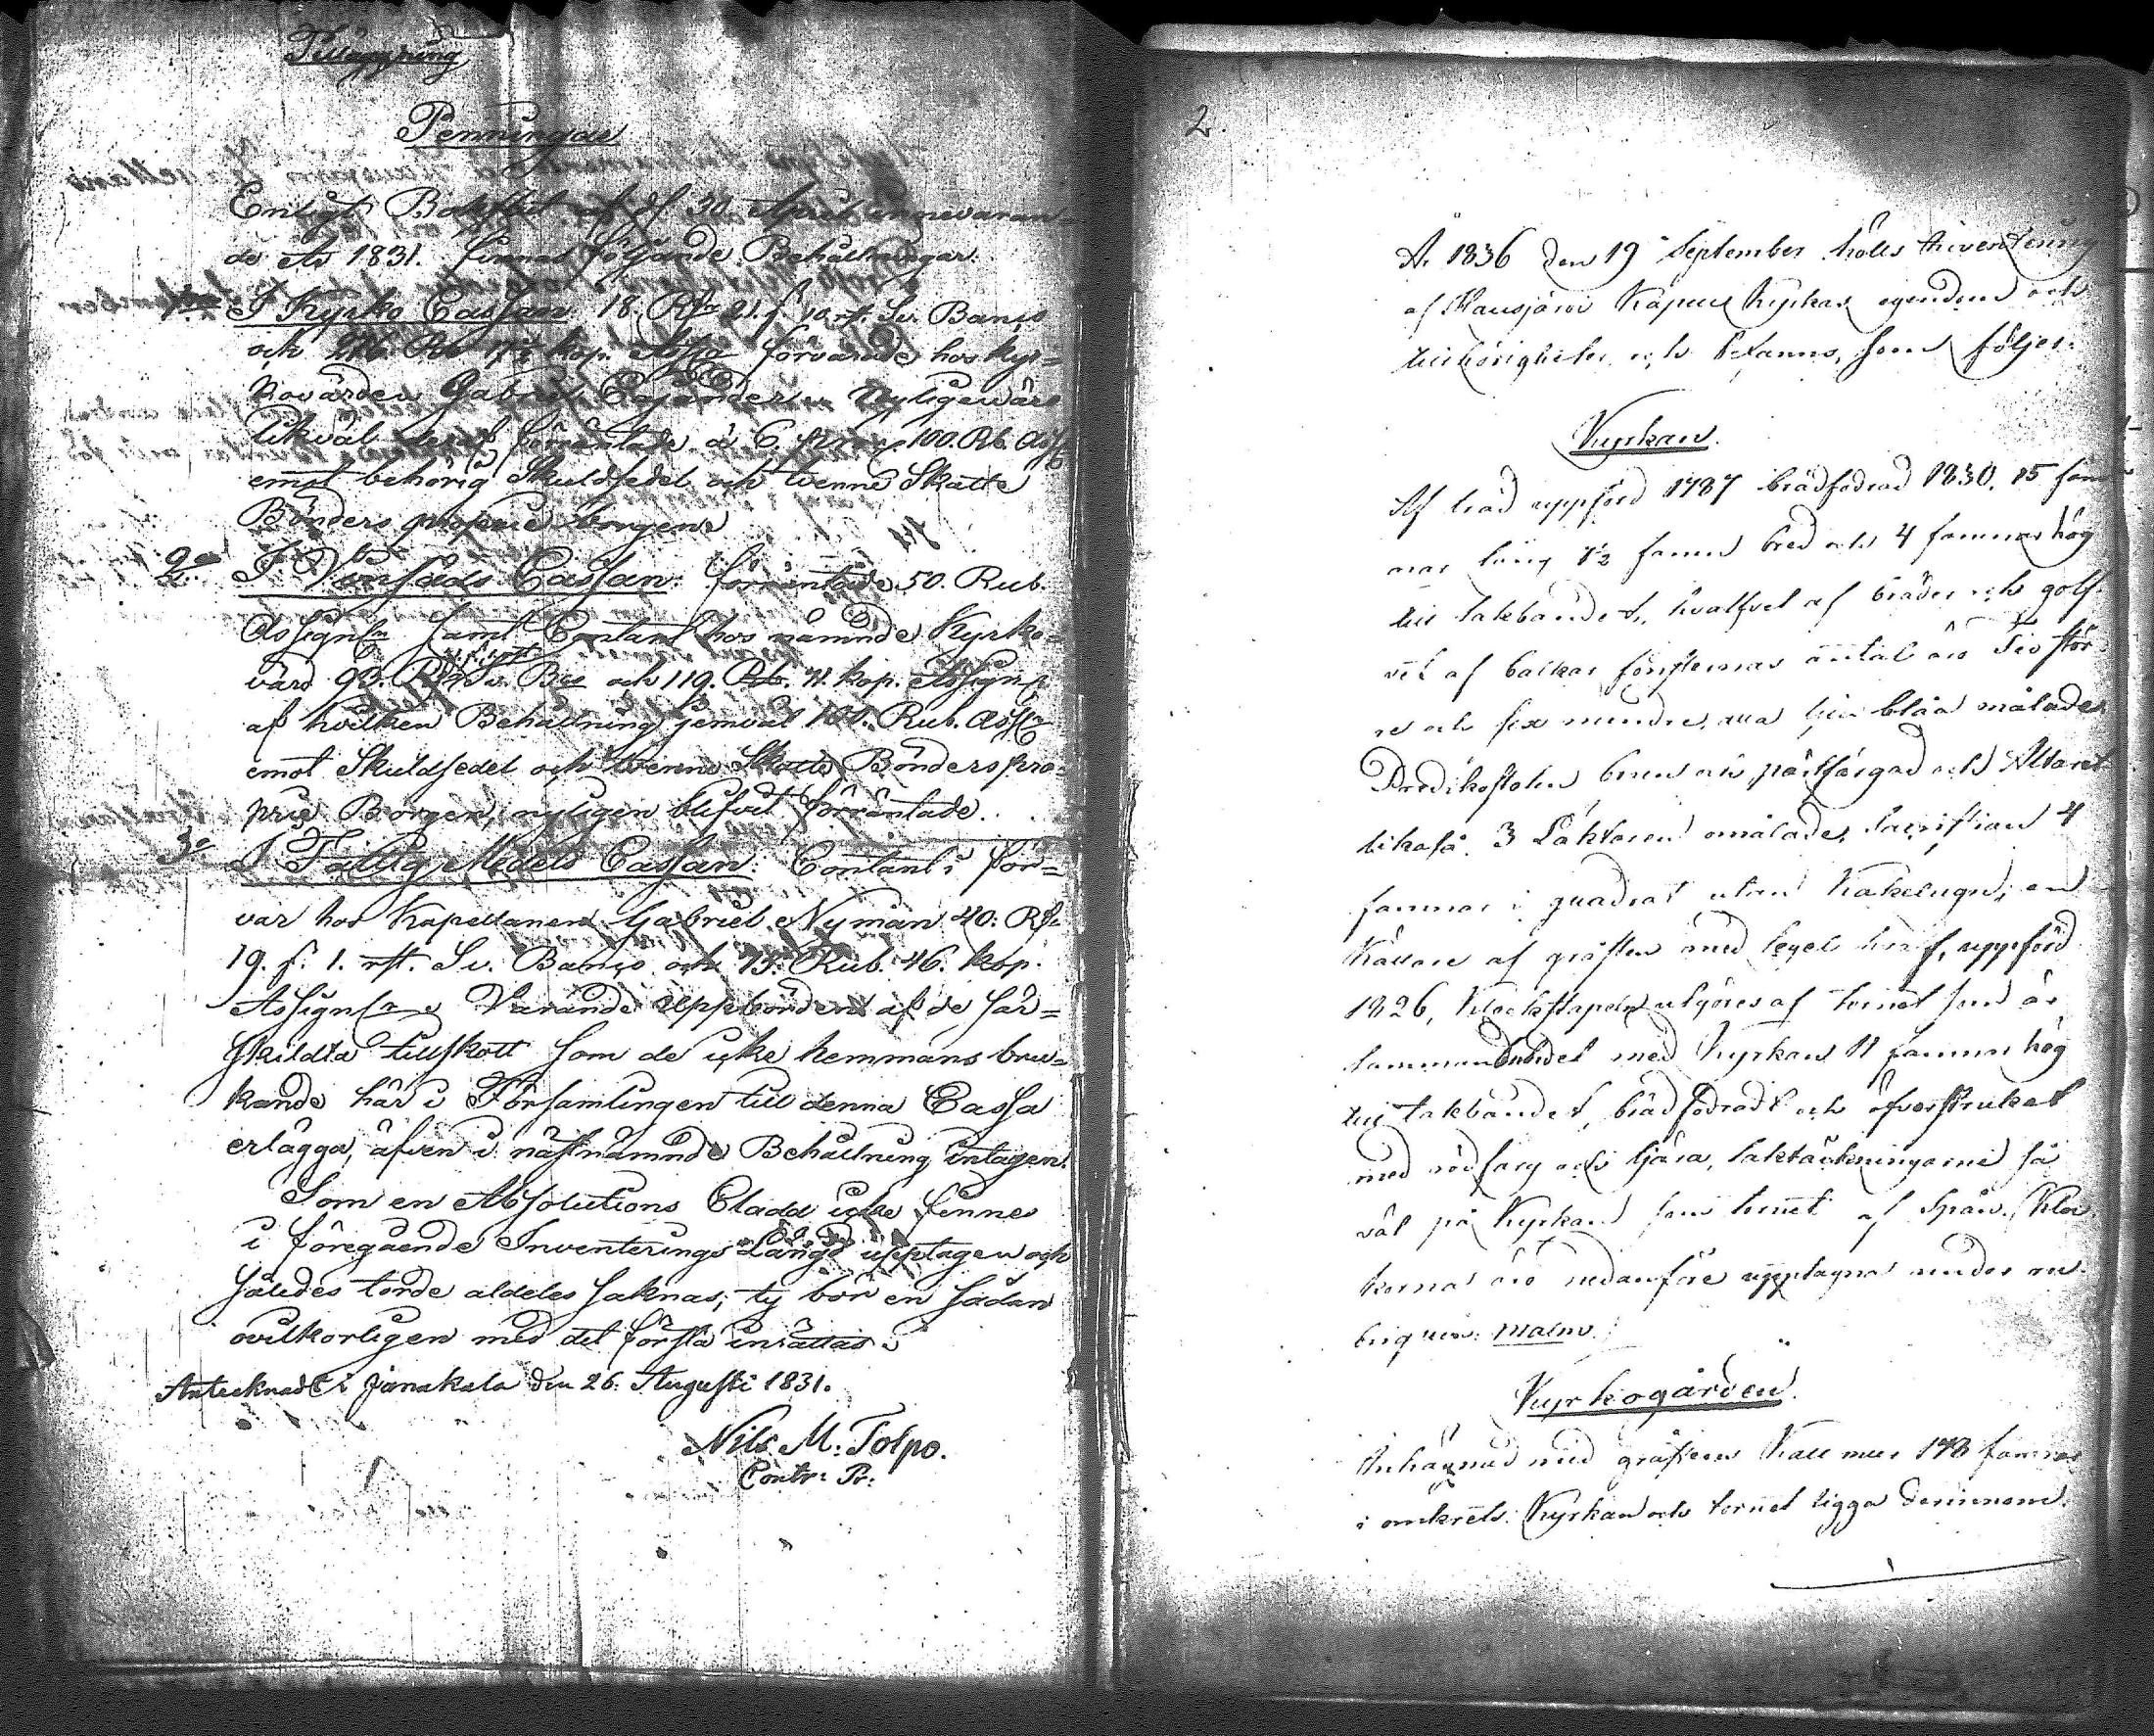 Tillägning
Penningar
Enligt Bokslut af d 30 April innevaran=
de År 1831. finnas följande Behållningar.
1o I Kyrko Cassan 18. Rdr 21. s 10. rst. Sv. Banco
och 276. Rub 17½ kop. Assig förvarade hos Kyr=
kovärden Gabriel Cajander. Nyligen äro
likväl deraf förräntade à 6. pro C. 100. Rb. Assig
emot behörig Skuldsedel och tvenne Skatte
Bönders proprie borgen
2o I Vinfads Cassan: förräntade 50. Rub.
Assignr samt Contant hos nämnde Kyrko=
värd 93. Rdr Sv. Bco och 119. Rb. 71. kop. Assignr
af hvilken Behållning jemväl 101. Rub. Assr
emot Skuldsedel och tvenne Skatte Bönders pro=
prie Borgen, nyligen blifvit förräntade.
3o I Fattig Medels Cassan: Contant i för=
var hos Kapellanen Gabriel Nyman 40: Rdr
19. s. 1. rst. Sv. Banco och 75. Rub. 46. kop.
Assignr Varande uppbörden af de sär=
skildta tillskott som de icke hemmans bru=
kande här i Församlingen till denna Cassa
erlägga, äfven i nästnämnde Behållning intagen.
Som en Absolutions Cladd icke finnes
i föregående Inventerings Längd upptagen och
således torde aldeles saknas; ty bör en sådan
ovilkorligen med det första inrättas
Antecknadt i Janakala den 26. Augusti 1831.
Nils M: Tolpo.
Contr: Pr:
2.
År 1836 den 19 September hölls Inventering
af Hausjärvi Kapell Kyrkas egendom och
tillhörigheter och befanns, som följer.
Kyrkan.
Af träd uppförd 1787 brädfodrad 1830. 15 fam
nar lång 7½ famn bred och 4 famnar hög
till takbandet, hvalfvet af bräder och golf
vet af balkar fönsternas antal äro Tio stör
re och sex mindre, alla blåa målade
Predikstolen brun och pärlfärgad och Altaret
likaså. 3 Läktaren omålade, Sacristian 4
famnar i quadrat utan Kakelugn, en
Källare af gråsten med tegel hvalf, uppförd
1826, Klockstapeln utgöres af tornet som är
sammanbundet med Kyrkan 11 famnar hög
till takbandet, brädfodradt och öfverstruket
med rödfärg och tjära, taktäckningarne så
väl på Kyrkan som tornet af Spån. Kloc
korna äro nedanföre upptagna under ru
briquen: Malm.
Kyrkogården.
Inhägnad med gråstens Kall mur 178 famnar
i omkrets. Kyrkan och tornet ligga derinnom.